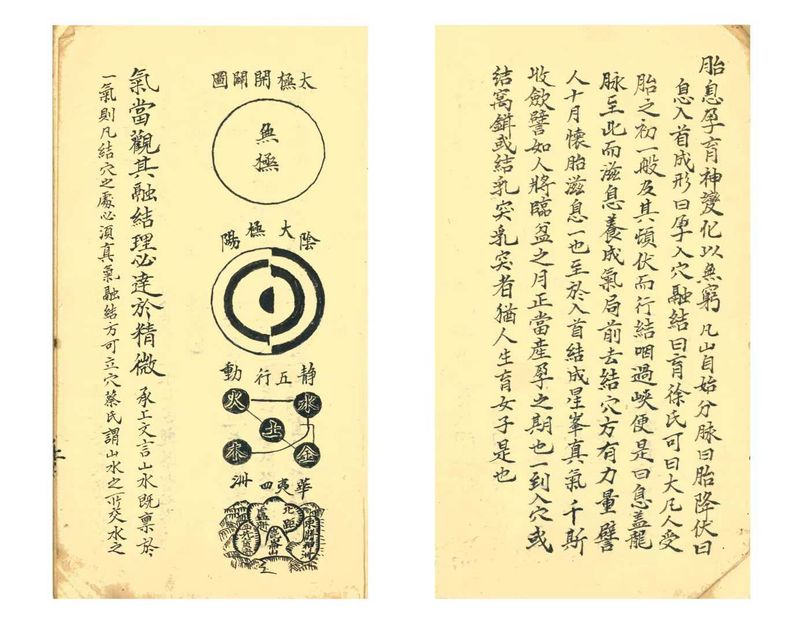 胎息孕育神變化以無窮 凡山自始分脉曰胎降伏曰
息入首成形曰孕入穴融結曰育徐氏可曰大凡人受
胎之初一般及其頓伏而行結咽過峽便是曰息盖龍
脉至此而滋息養成氣局前去結穴方有力量譬
人十月懷胎滋息一也至於入首結成星峯真氣千斯
收歛譬如人將臨盆之月正當產孕之期也一到入穴或
結窩鉗或結乳突乳突者猶人生育女子是也
太極開闢圖
無極
陰大極陽
静五行動
水火
土
金木
華夷四洲
北距
東勝神洲
崑崙山
氣當觀其融結理必達於精微 承上文言山水既禀於
一氣則凡結穴之處必須真氣融結方可立穴蔡氏謂山水之所交水之